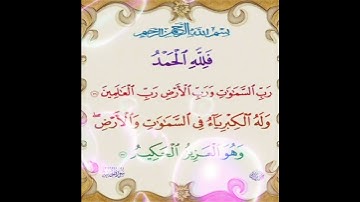 بِسْمِ اللَّهِ الرَّحْمَنِ الرَّحِيمِ
فَلِلَّهِ الْحَمْدُ
رَبِّ السَّمَوَتِ وَرَبِّ الْأَرْضِ رَبِّ الْعَلَمِينَ
وَلَهُ الْكِبْرِيَآءُ فِي السَّمَوَتِ وَالْأَرْضِ ۖ
وَهُوَ الْعَزِيزُ الْحَكِيمُ